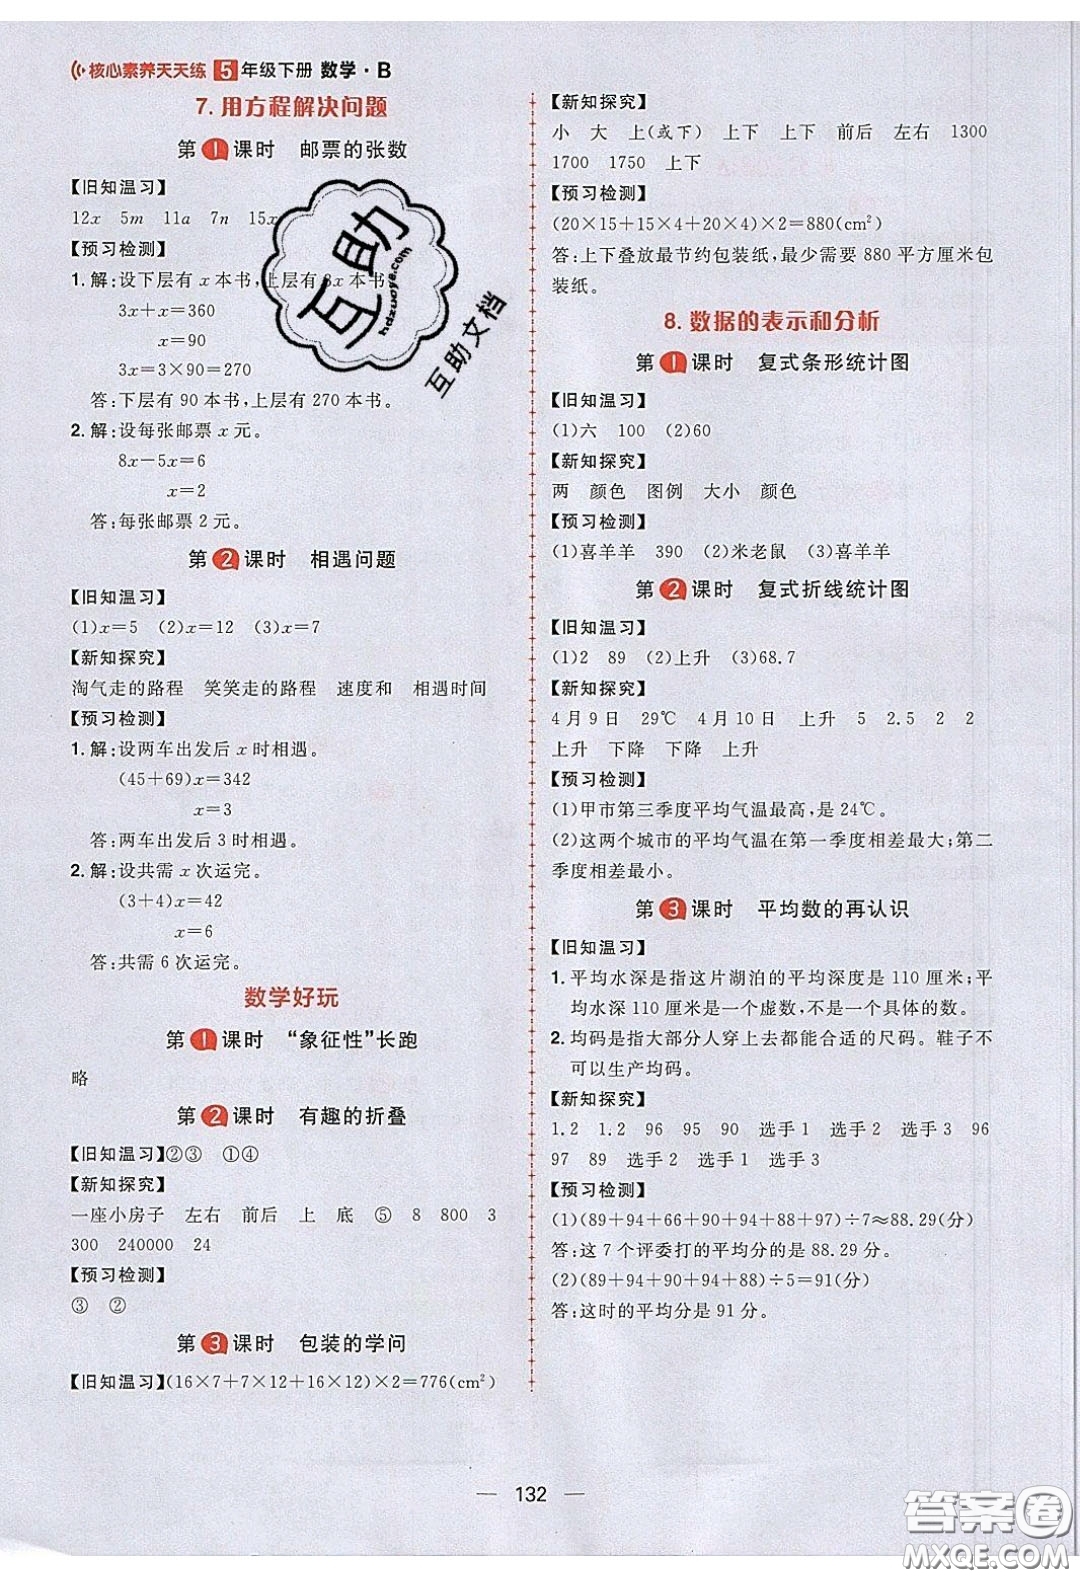 核心素养天天练 5 年级下册 数学·B
7. 用方程解决问题
第1课时 邮票的张数
【旧知温习】
12x 5m 11a 7n 15x
【预习检测】
1. 解:设下层有 x 本书,上层有 3x 本书。
3x+x=360
x=90
3x=3×90=270
答:下层有 90 本书,上层有 270 本书。
2. 解:设每张邮票 x 元。
8x-5x=6
x=2
答:每张邮票 2 元。
第2课时 相遇问题
【旧知温习】
(1)x=5 (2)x=12 (3)x=7
【新知探究】
淘气走的路程 笑笑走的路程 速度和 相遇时间
【预习检测】
1. 解:设两车出发后 x 时相遇。
(45+69)x=342
x=3
答:两车出发后 3 时相遇。
2. 解:设共需 x 次运完。
(3+4)x=42
x=6
答:共需 6 次运完。
数学好玩
第1课时 “象征性”长跑
略
第2课时 有趣的折叠
【旧知温习】②③ ①④
【新知探究】
一座小房子 左右 前后 上 底 ⑤ 8 800 3
300 240000 24
【预习检测】
③ ②
第3课时 包装的学问
【旧知温习】(16×7+7×12+16×12)×2=776(cm²)
【新知探究】
小 大 上(或下) 上下 上下 前后 左右 1300
1700 1750 上下
【预习检测】
(20×15+15×4+20×4)×2=880(cm²)
答:上下叠放最节约包装纸,最少需要 880 平方厘米包
装纸。
8. 数据的表示和分析
第1课时 复式条形统计图
【旧知温习】
(1)六 100 (2)60
【新知探究】
两 颜色 图例 大小 颜色
【预习检测】
(1)喜羊羊 390 (2)米老鼠 (3)喜羊羊
第2课时 复式折线统计图
【旧知温习】
(1)2 89 (2)上升 (3)68.7
【新知探究】
4月9日 29℃ 4月10日 上升 5 2.5 2 2
上升 下降 下降 上升
【预习检测】
(1)甲市第三季度平均气温最高,是 24℃。
(2)这两个城市的平均气温在第一季度相差最大;第二
季度相差最小。
第3课时 平均数的再认识
【旧知温习】
1. 平均水深是指这片湖泊的平均深度是 110 厘米;平
均水深 110 厘米是一个虚数,不是一个具体的数。
2. 均码是指大部分人穿上去都能合适的尺码。鞋子不
可以生产均码。
【新知探究】
1.2 1.2 96 95 90 选手1 选手2 选手3 96
97 89 选手2 选手1 选手3
【预习检测】
(1)(89+94+66+90+94+88+97)÷7≈88.29(分)
答:这 7 个评委打的平均分的是 88.29 分。
(2)(89+94+90+94+88)÷5=91(分)
答:这时的平均分是 91 分。
132
互助
hdzuoye.com
互助文档
答案圈
MXQE.COM